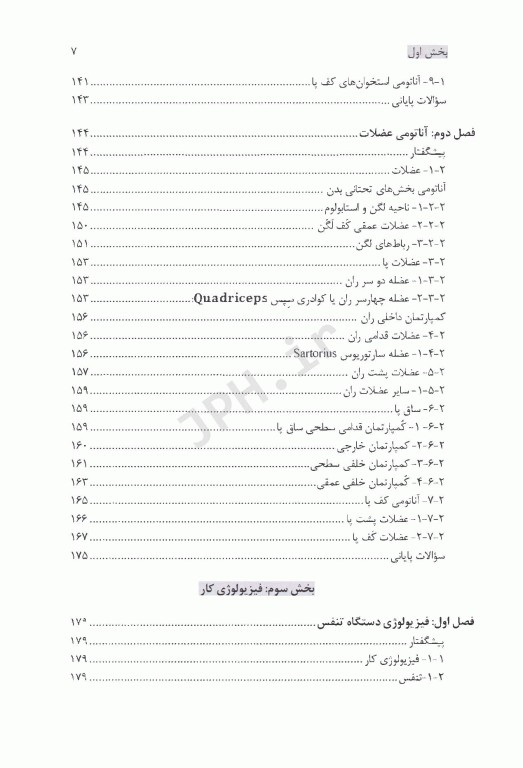 بخش اول ۷
۹-۱- آناتومی استخوان‌های کف پا ۱۴۱
سؤالات پایانی ۱۴۳
فصل دوم: آناتومی عضلات ۱۴۴
پیشگفتار ۱۴۴
۱-۲- عضلات ۱۴۵
آناتومی بخش‌های تحتانی بدن ۱۴۵
۱-۲-۲- ناحیه لگن و استابولوم ۱۴۵
۲-۲-۲- عضلات عمقی کَف لَگَن ۱۵۰
۳-۲-۲- رباط‌های لگن ۱۵۱
۳-۲- عضلات پا ۱۵۳
۱-۳-۲- عضله دو سر ران ۱۵۳
۲-۳-۲- عضله چهارسر ران یا کوادری سپس Quadriceps ۱۵۳
کمپارتمان داخلی ران ۱۵۶
۴-۲- عضلات قدامی ران ۱۵۶
۱-۴-۲- عضله سارتوریوس Sartorius ۱۵۶
۵-۲- عضلات پشت ران ۱۵۷
۱-۵-۲- سایر عضلات ران ۱۵۹
۶-۲- ساق پا ۱۵۹
۱-۶-۲- کُمپارتمان قدامی سطحی ساق پا ۱۵۹
۲-۶-۲- کمپارتمان خارجی ۱۶۰
۳-۶-۲- کمپارتمان خلفی سطحی ۱۶۱
۴-۶-۲- کُمپارتمان خلفی عمقی ۱۶۳
۷-۲- آناتومی کف پا ۱۶۵
۱-۷-۲- عضلات پشت پا ۱۶۶
۲-۷-۲- عضلات کَف پا ۱۶۷
سؤالات پایانی ۱۷۵
بخش سوم: فیزیولوژی کار
فصل اول: فیزیولوژی دستگاه تنفس ۱۷۹
پیشگفتار ۱۷۹
۱-۱- فیزیولوژی کار ۱۷۹
۲-۱- تنفس ۱۷۹
JPH.ir